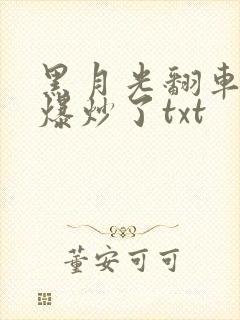 黑月光翻車
爆炒了txt
董安可可